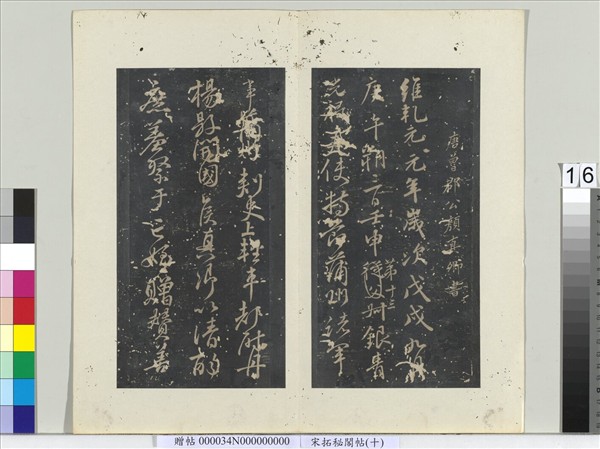 唐魯郡公顏真卿書
維乹元元年歲次戊戌九月
庚午朔三日壬申第十三
從父卅銀青
光祿夫使持節蒲州諸軍
事蒲州刾史上輕車都尉丹
楊縣開國侯真卿以清酌
庶羞祭于亡姪贈贊善
16
贈帖 000034N000000000
宋拓秘閣帖(十)